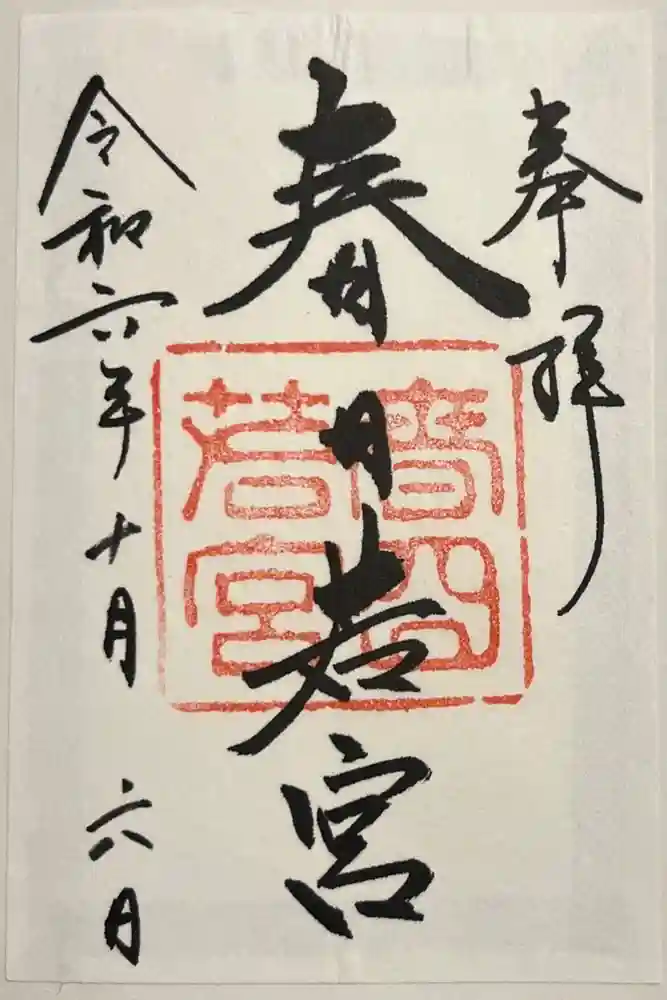 奉拝
春日若宮
令和六年十月六日
春日
若宮